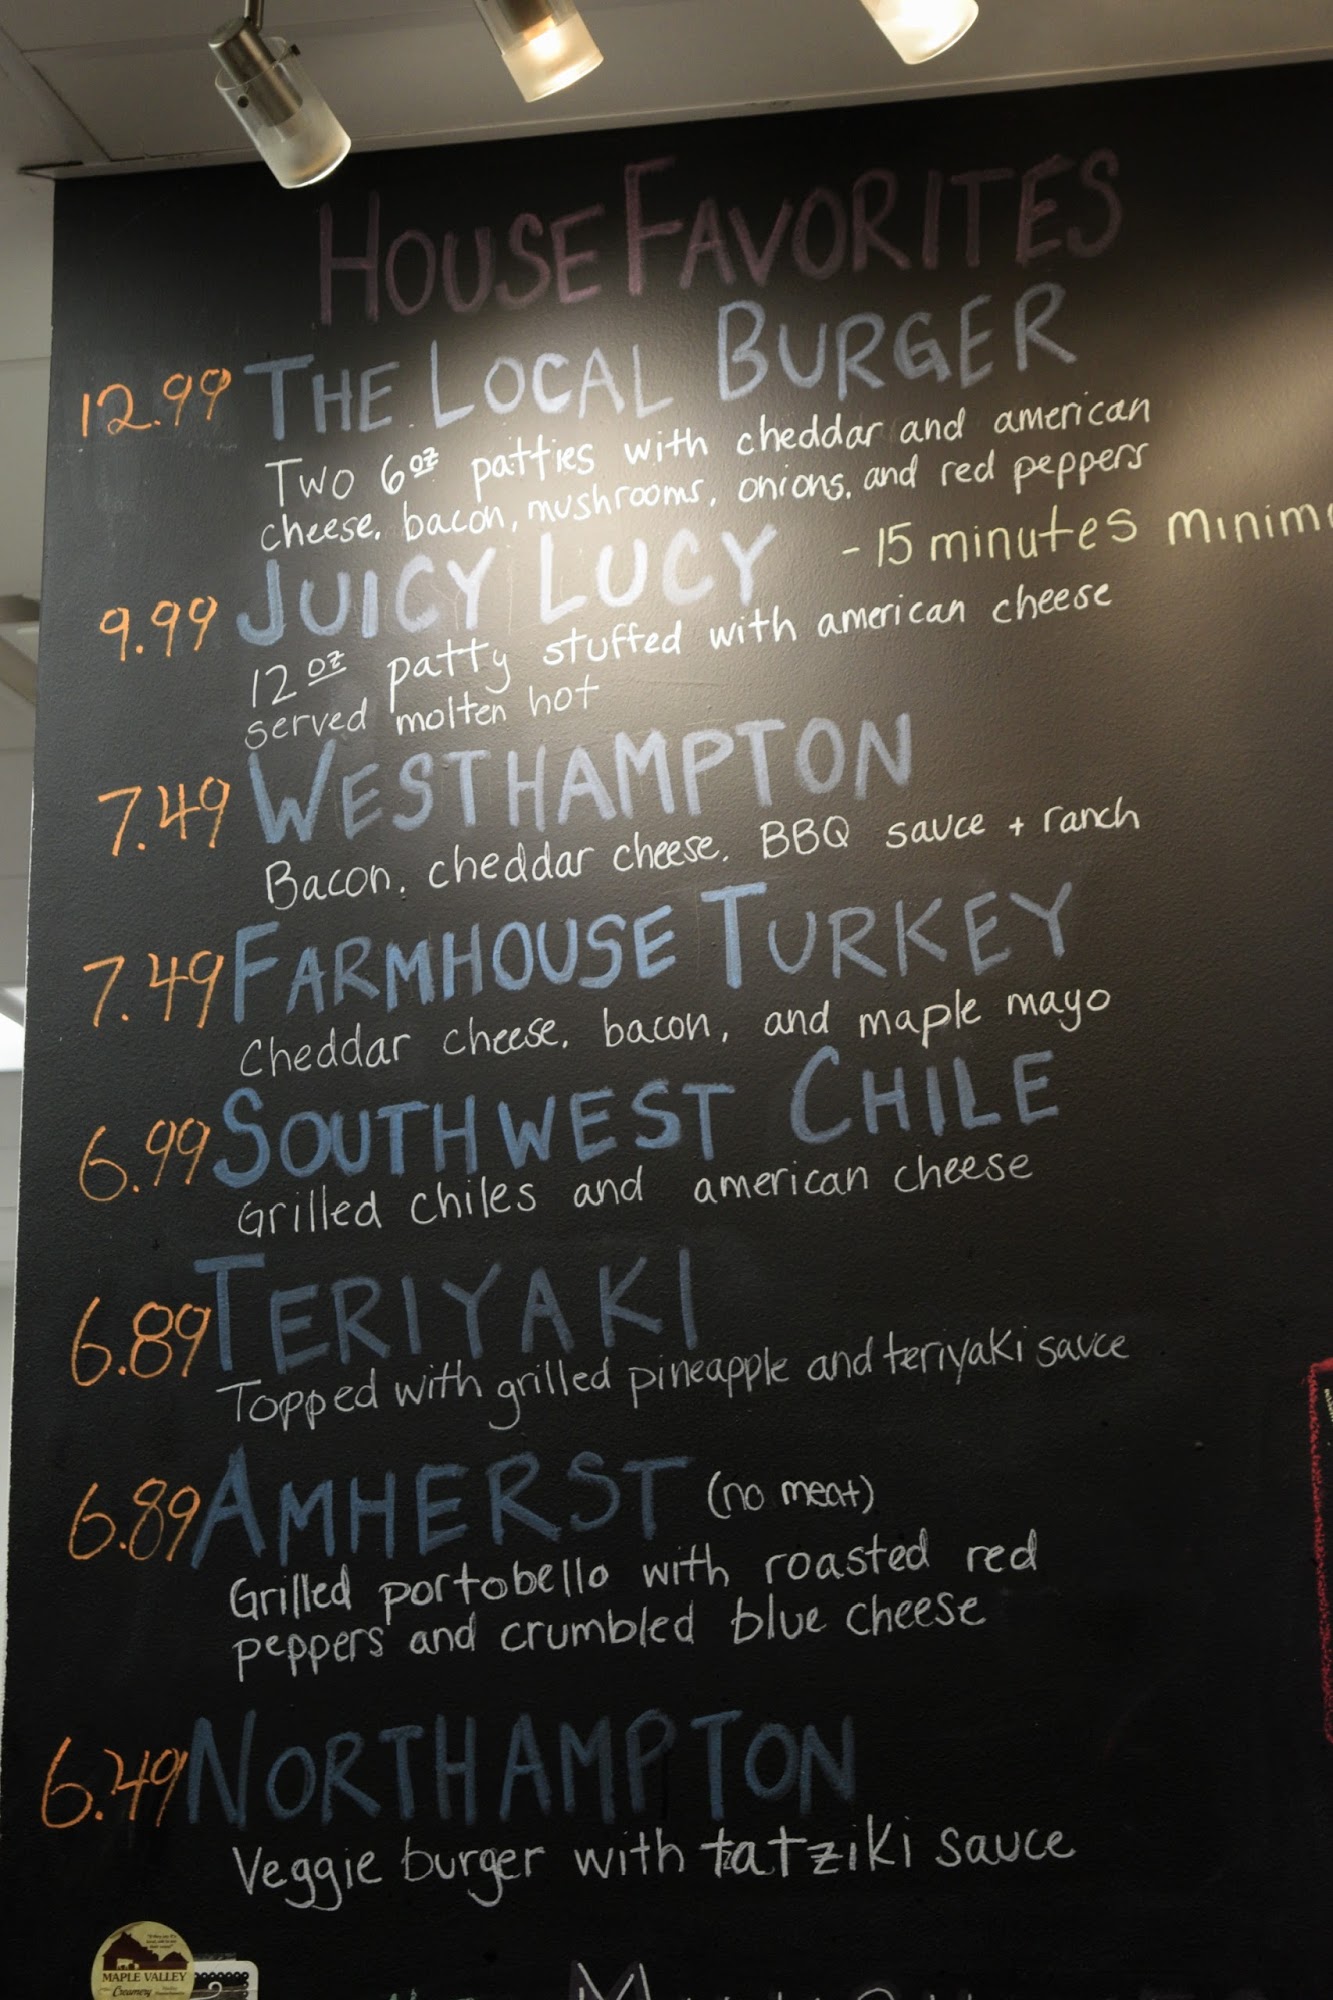 HOUSE FAVORITES
12.99 THE LOCAL BURGER
Two 6oz patties with cheddar and american
cheese, bacon, mushrooms, onions, and red peppers
9.99 JUICY LUCY - 15 minutes
12oz patty stuffed with american cheese
served molten hot
7.49 WESTHAMPTON
Bacon, cheddar cheese, BBQ sauce + ranch
7.49 FARMHOUSE TURKEY
Cheddar cheese, bacon, and maple mayo
6.99 SOUTHWEST CHILE
Grilled chiles and american cheese
6.89 TERIYAKI
Topped with grilled pineapple and teriyaki sauce
6.89 AMHERST (no meat)
Grilled portobello with roasted red
peppers and crumbled blue cheese
6.49 NORTHAMPTON
Veggie burger with tatziki sauce
MAPLE VALLEY
Creamery